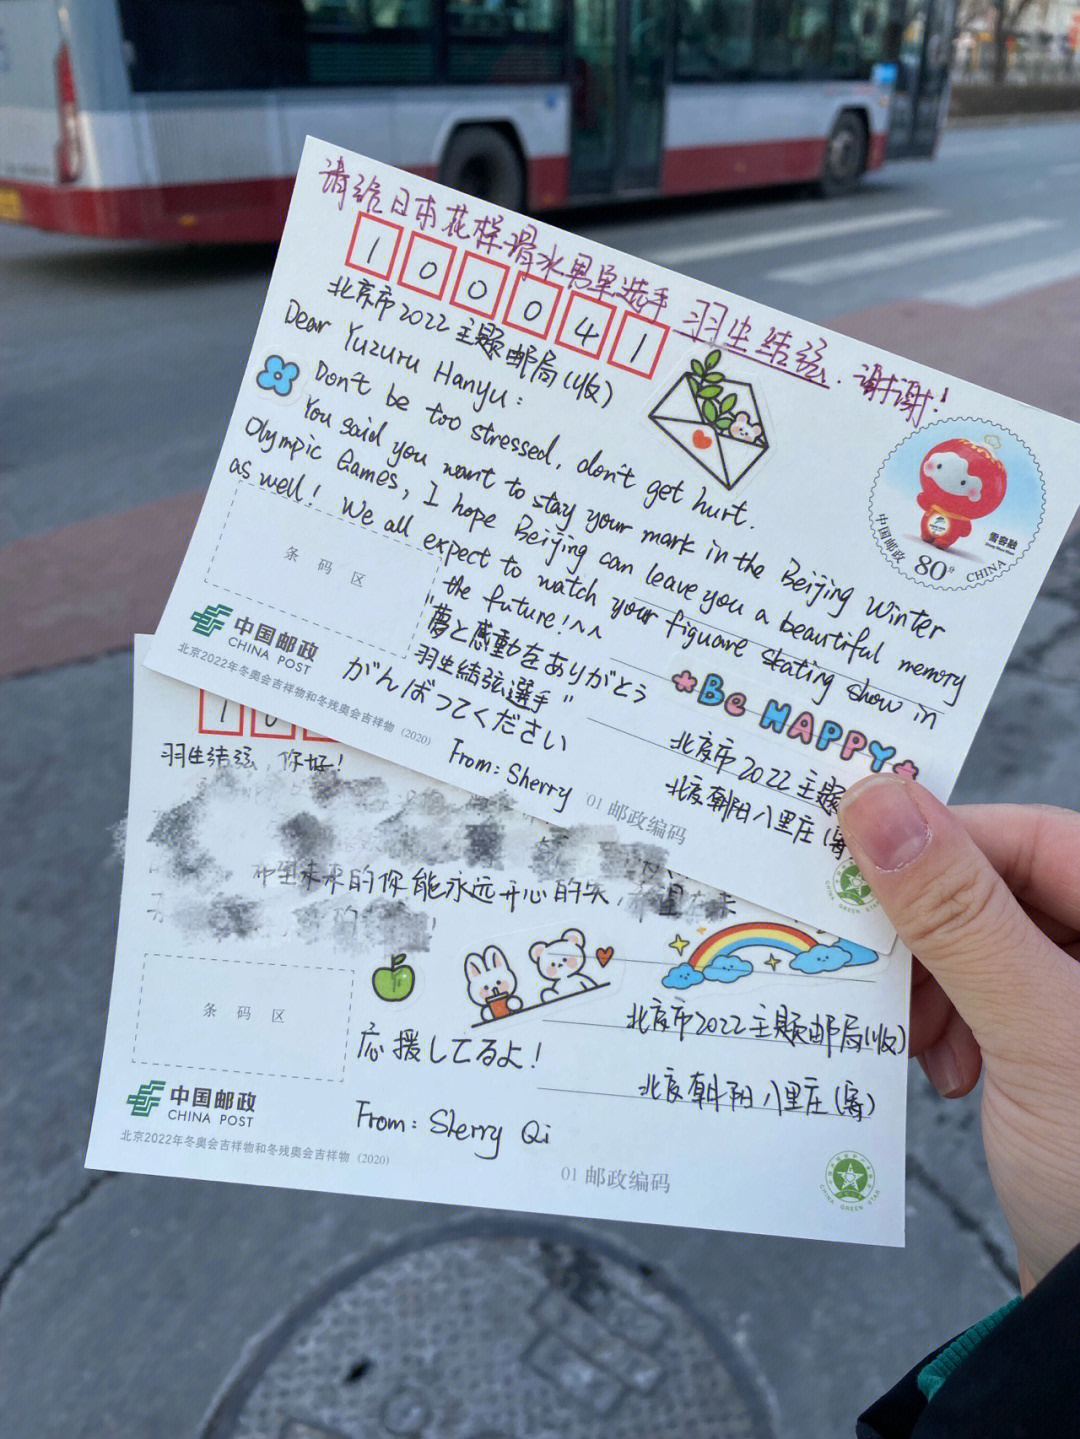 请给日本花样滑冰男单选手 羽生结弦. 谢谢!
100041
北京市2022主题邮局(收)
Dear Yuzuru Hanyu:
Don't be too stressed, don't get hurt.
You said you want to stay your mark in the Beijing Winter
Olympic Games, I hope Beijing can leave you a beautiful memory
as well! We all expect to watch your figuare skating show in
the future!^^
"夢と感動をありがとう
羽生結弦選手"
がんばってください
From: Sherry
条码区
中国邮政
CHINA POST
北京2022年冬奥会吉祥物和冬残奥会吉祥物 (2020)
雪容融
中国邮政
80分
CHINA
Be HAPPY
北京市2022主题
北京朝阳八里庄(寄
01 邮政编码
CHINA GREEN STAR
1
羽生结弦, 你好!
希望未来的你能永远开心的笑,
条码区
応援してるよ!
北京市2022主题邮局(收)
北京朝阳八里庄(寄)
From: Sherry Qi
中国邮政
CHINA POST
北京2022年冬奥会吉祥物和冬残奥会吉祥物 (2020)
01 邮政编码
CHINA GREEN STAR